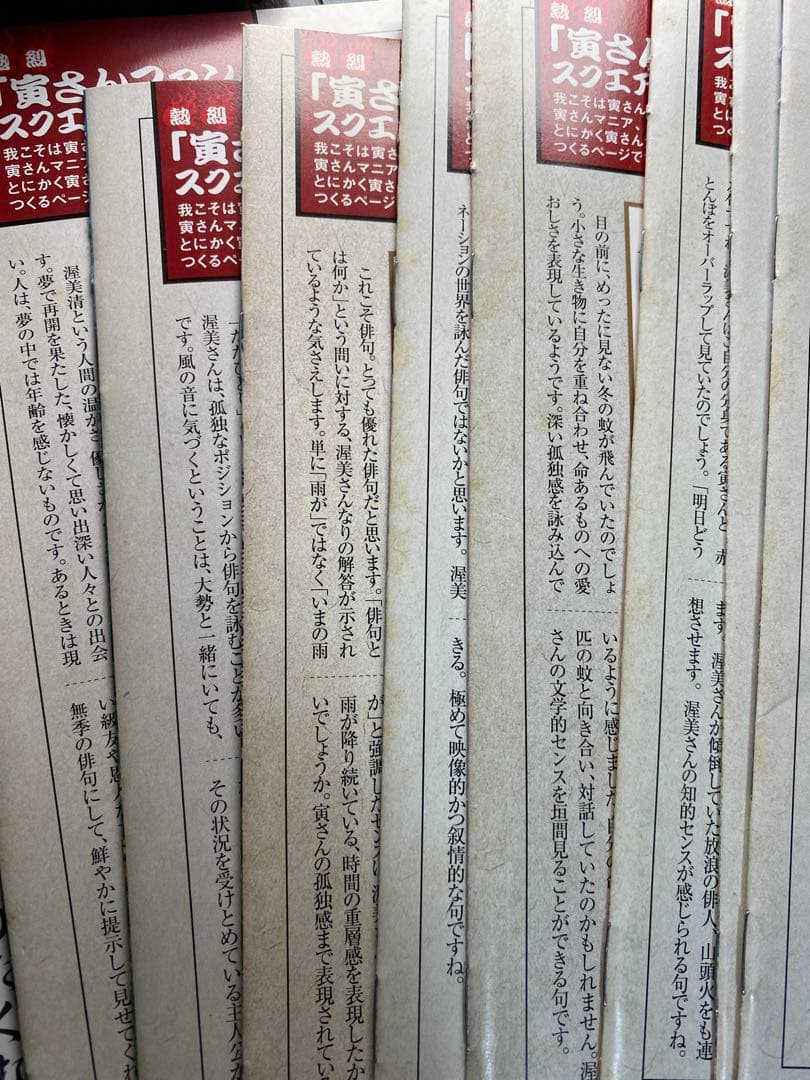 熱烈
「寅さんファン
スクエ
我こそは寅さ
寅さんマニ
とにかく寅
つくるページ
渥美清という人間の温かさ、優
す。夢で再開を果たした、懐かしくて思い出深い人々との出会
い。人は、夢の中では年齢を感じないものです。あるときは現
無季の俳句にして、鮮やかに提示して見せてくれ
熱烈
「寅さ
スクエ
我こそは寅
寅さんマニ
とにかく寅
つくるペー
渥美さんは、孤独なポジションから俳句を詠むことが多い
です。風の音に気づくということは、大勢と一緒にいても、
その状況を受けとめている主人公が
熱烈
「寅さ
スクエア
我こそは寅さ
寅さんマニア
とにかく寅さ
つくるページ
これこそ俳句。とっても優れた俳句だと思います。「俳句と
は何か」という問いに対する、渥美さんなりの解答が示され
ているような気さえします。単に「雨が」ではなく「いまの雨
が」と強調したセンスに、渥美さ
雨が降り続いている、時間の重層感を表現したか
いでしょうか。寅さんの孤独感まで表現されてい
ネーションの世界を詠んだ俳句ではないかと思います。渥美
きる。極めて映像的かつ叙情的な句ですね。
熱烈
「寅さん
スクエア
我こそは寅さん
寅さんマニア、
とにかく寅さん
つくるページで
目の前に、めったに見ない冬の蚊が飛んでいたのでしょ
う。小さな生き物に自分を重ね合わせ、命あるものへの愛
おしさを表現しているようです。深い孤独感を詠み込んで
いるように感じました。自分の
匹の蚊と向き合い、対話していたのかもしれません。渥
さんの文学的センスを垣間見ることができる句です。
「寅
スク
我こ
寅さ
とに
つく
渥美さんはご自分の分身である寅さんと、赤
とんぼをオーバーラップして見ていたのでしょう。「明日どう
ます。渥美さんが傾倒していた放浪の俳人、山頭火をも連
想させます。渥美さんの知的センスが感じられる句ですね。